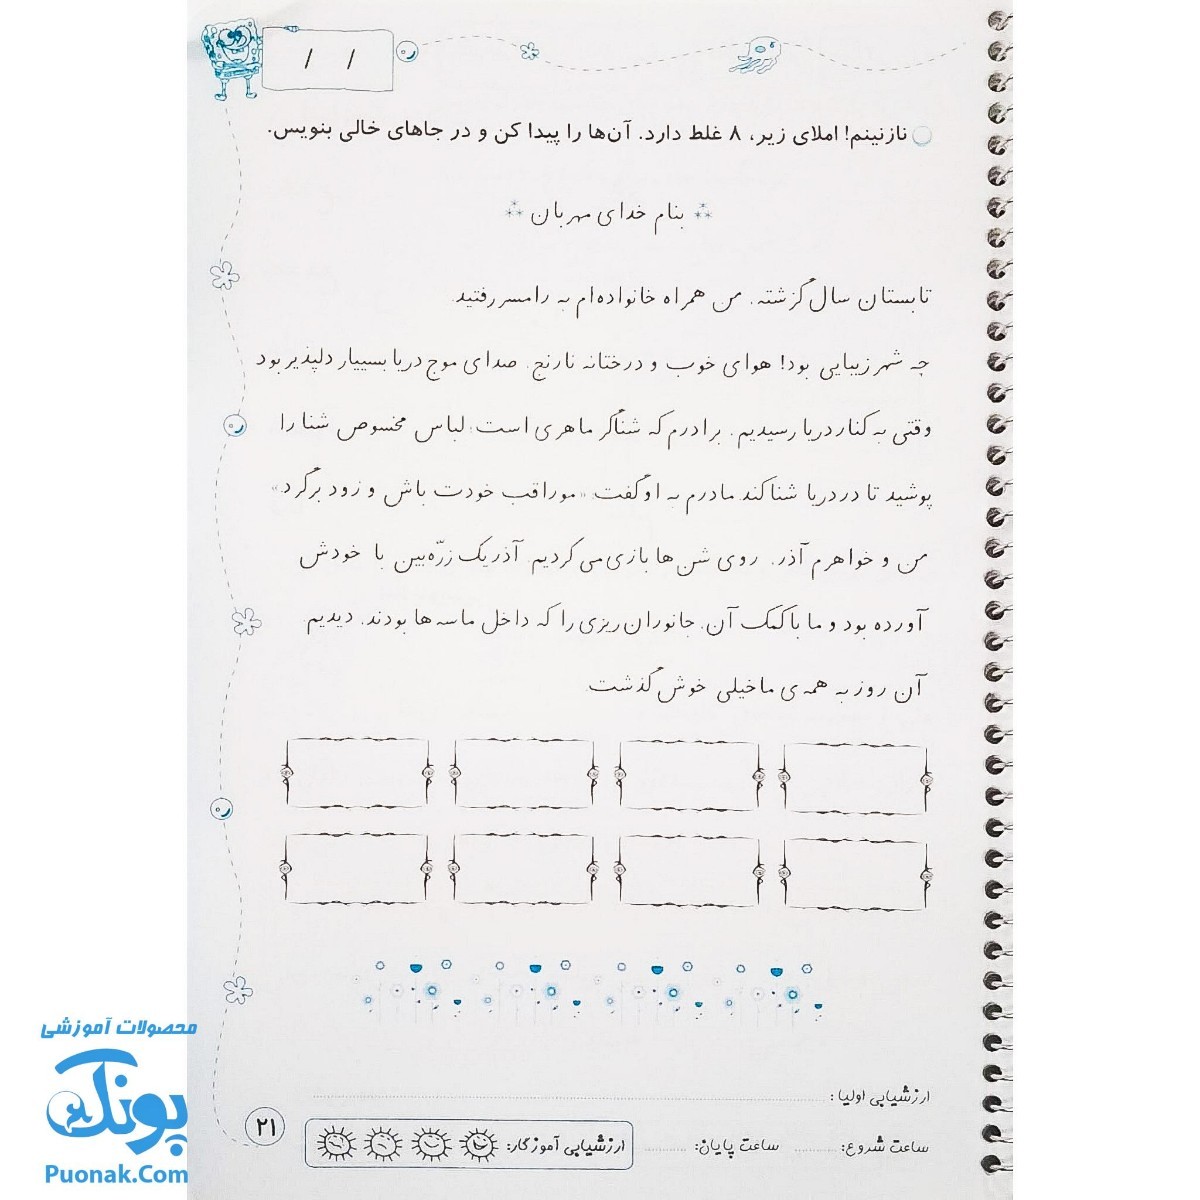 / /
نازنینم! املای زیر، ۸ غلط دارد. آن‌ها را پیدا کن و در جاهای خالی بنویس.
بنام خدای مهربان
تابستان سال گزشته، من همراه خانواده‌ام به رامسر رفتید.
چه شهر زیبایی بود! هوای خوب و درختانه نارنج. صدای موج دریا بسییار دلپذیر بود
وقتی به کنار دریا رسیدیم. برادرم که شناگر ماهری است، لباس مخسوص شنا را
پوشید تا در دریا شنا کند. مادرم به او گفت: «موراقب خودت باش و زود برگرد.»
من و خواهرم آذر، روی شن‌ها بازی می‌کردیم. آذر یک زرّه‌بین با خودش
آورده بود و ما با کمک آن، جانوران ریزی را که داخل ماسه‌ها بودند، دیدیم.
آن روز به همه‌ی ما خیلی خوش گذشت.
ارزشیابی اولیا:
ساعت شروع: ساعت پایان: ارزشیابی آموزگار:
۲۱
محصولات آموزشی
پونک
Puonak.Com